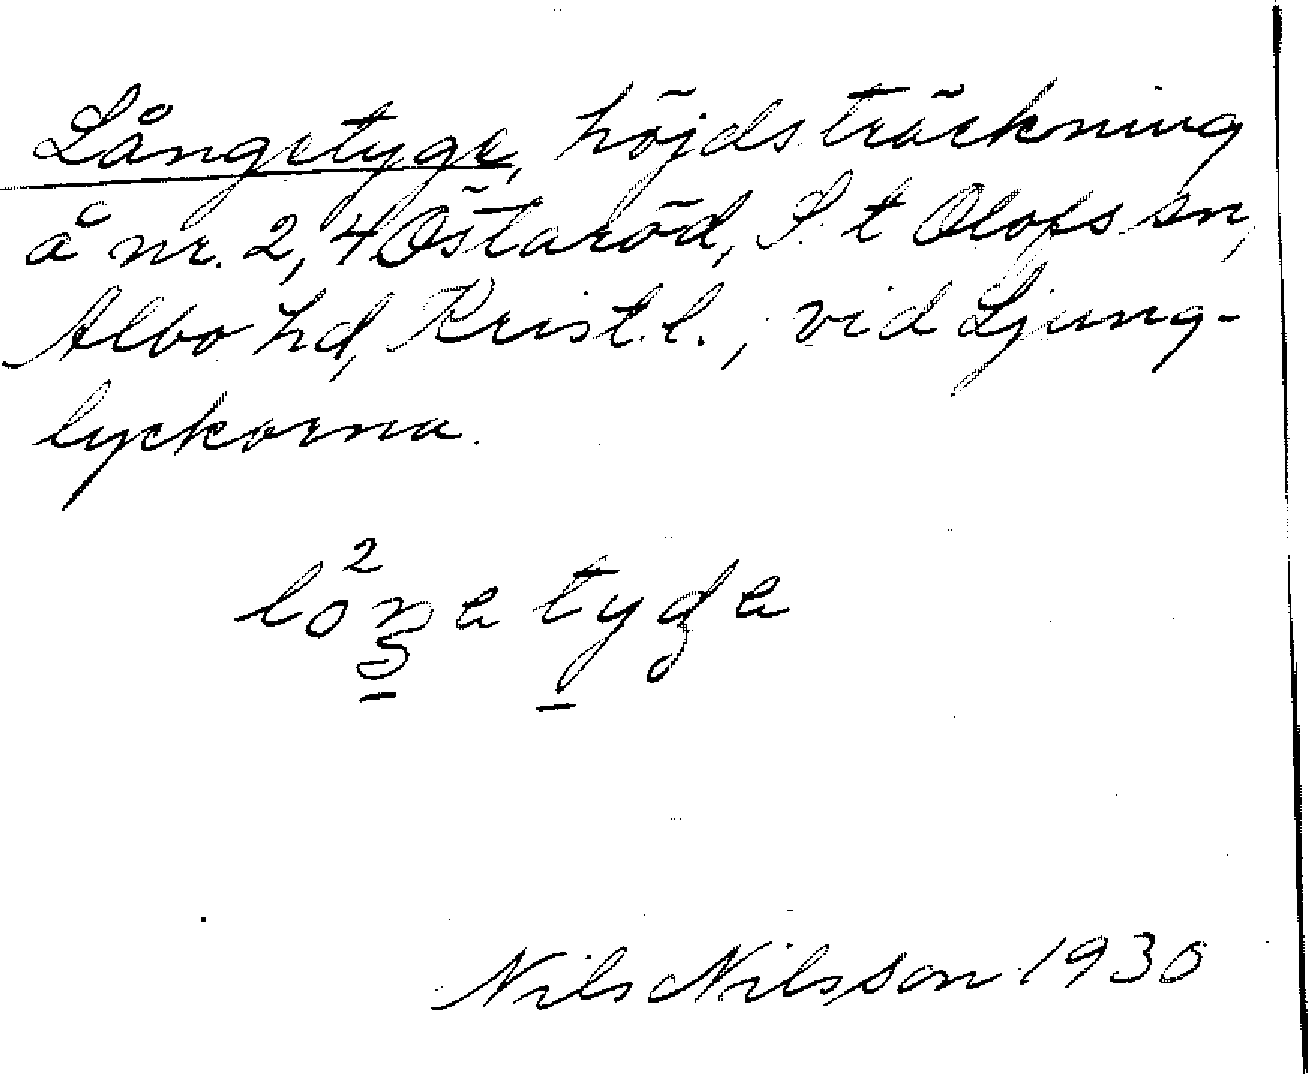 Långetyge, höjdsträckning
å nr. 2, 4 Östaröd, S:t Olofs sn,
Albo hd, Krist.l., vid Ljung-
lyckorna.
lo²ŋe tyge
Nils Nilsson 1930